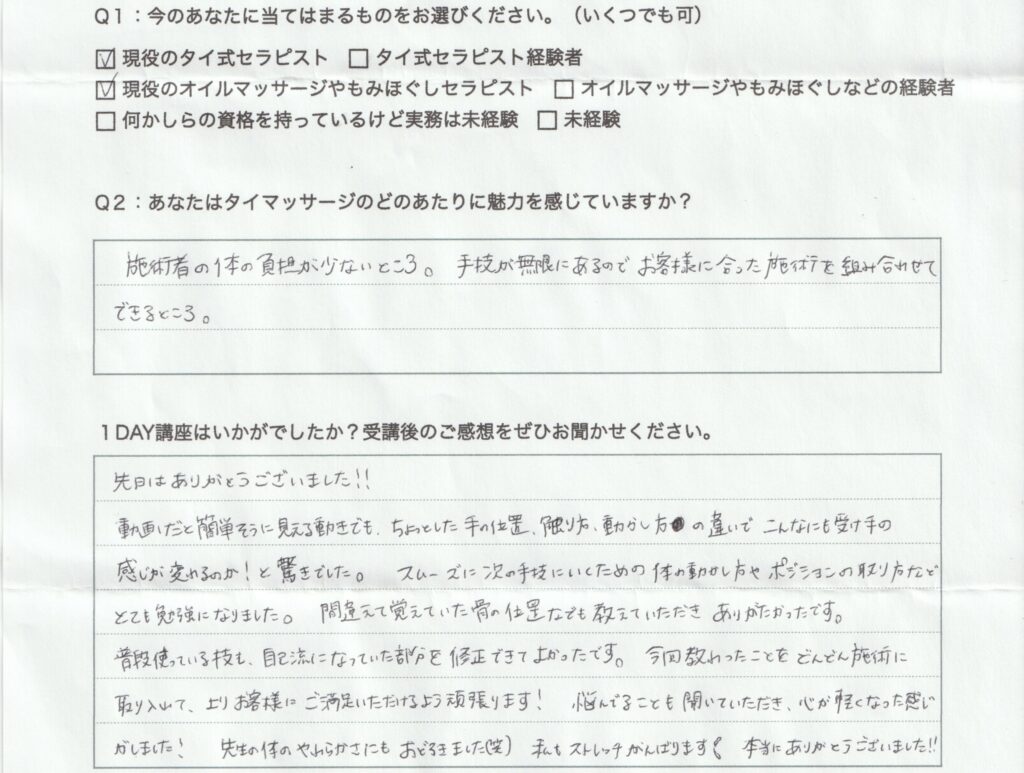 Q1：今のあなたに当てはまるものをお選びください。（いくつでも可）
☑ 現役のタイ式セラピスト　□ タイ式セラピスト経験者
☑ 現役のオイルマッサージやもみほぐしセラピスト　□ オイルマッサージやもみほぐしなどの経験者
□ 何かしらの資格を持っているけど実務は未経験　□ 未経験
Q2：あなたはタイマッサージのどのあたりに魅力を感じていますか？
施術者の体の負担が少ないところ。　手技が無限にあるので お客様に合った施術を組み合わせて
できるところ。
1DAY講座はいかがでしたか？受講後のご感想をぜひお聞かせください。
先日はありがとうございました!!
動画だと簡単そうに見える動きでも、ちょっとした手の位置、触り方、動かし方の違いで こんなにも受け手の
感じが変わるのか！と驚きでした。　スムーズに次の手技にいくための体の動かし方やポジションの取り方など
とても勉強になりました。　間違えて覚えていた骨の位置なども教えていただき ありがたかったです。
普段使っている技も、自己流になっていた部分を修正できてよかったです。　今回教わったことをどんどん施術に
取り入れて、よりお客様にご満足いただけるよう頑張ります！　悩んでることも聞いていただき、心が軽くなった感じ
がしました！　先生の体のやわらかさにもおどろきました(笑)　私もストレッチがんばります！　本当にありがとうございました!!